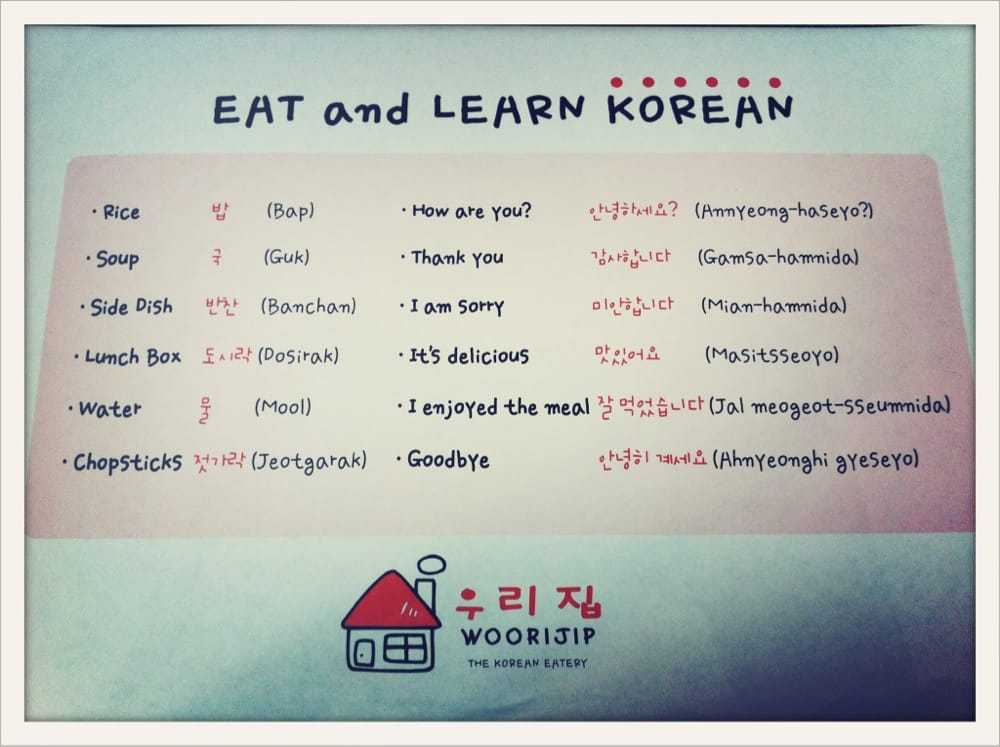 EAT and LEARN KOREAN
· Rice 밥 (Bap) · How are you? 안녕하세요? (Annyeong-haseyo?)
· Soup 국 (Guk) · Thank you 감사합니다 (Gamsa-hamnida)
· Side Dish 반찬 (Banchan) · I am sorry 미안합니다 (Mian-hamnida)
· Lunch Box 도시락 (Dosirak) · It's delicious 맛있어요 (Masitsseoyo)
· Water 물 (Mool) · I enjoyed the meal 잘 먹었습니다 (Jal meogeot-sseumnida)
· Chopsticks 젓가락 (Jeotgarak) · Goodbye 안녕히 계세요 (Ahnyeonghi gyeseyo)
우리 집
WOORIJIP
THE KOREAN EATERY